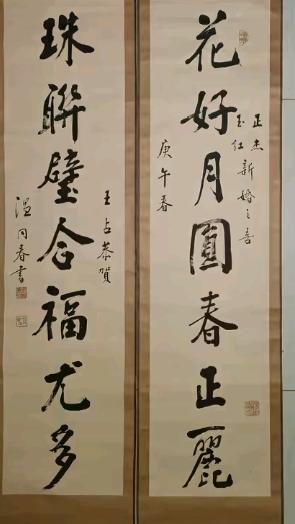 花好月圓春正麗
正杰
玉紅新婚之喜
庚午春
珠聯璧合福尤多
王占恭賀
溫同春書